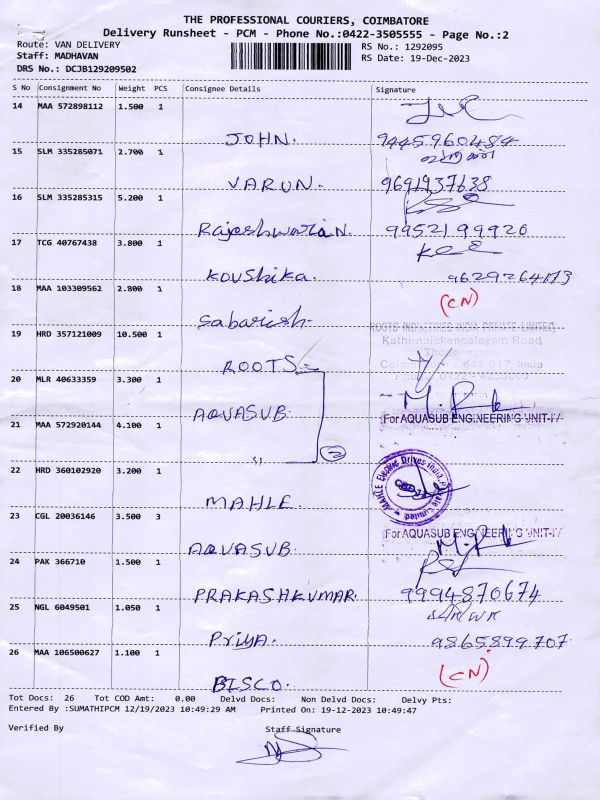 THE PROFESSIONAL COURIERS, COIMBATORE
Delivery Runsheet - PCM - Phone No.:0422-3505555 - Page No.:2
Route: VAN DELIVERY
RS No.: 1292095
Staff: MADHAVAN
RS Date: 19-Dec-2023
DRS No.: DCJB129209502
S No Consignment No Weight PCS Consignee Details Signature
14 MAA 572898112 1.500 1
JOHN. 9445960484
15 SLM 335285071 2.700 1
VARUN. 9691937638
16 SLM 335285315 5.200 1
Rajeshwaran. 9952199920
17 TCG 40767438 3.800 1
Koushika. 9629264173
18 MAA 103309562 2.800 1 (CN)
Sabarish.
19 HRD 357121009 10.500 1 ROOTS INDUSTRIES INDIA PRIVATE LIMITED
Kathirnaickenpalayam Road
ROOTS
20 MLR 40633359 3.300 1
AQUASUB.
21 MAA 572920144 4.100 1 For AQUASUB ENGINEERING UNIT-IV
" 2
22 HRD 360102920 3.200 1 MAHLE Electric Drives India Private Limited
MAHLE
23 CGL 20036146 3.500 3 For AQUASUB ENGINEERING UNIT-IV
AQUASUB.
24 PAK 366710 1.500 1
PRAKASHKUMAR. 9994870674
25 NGL 6049501 1.050 1
Priya. 9865899707
26 MAA 106500627 1.100 1 (CN)
BISCO.
Tot Docs: 26 Tot COD Amt: 0.00 Delvd Docs: Non Delvd Docs: Delvy Pts:
Entered By :SUMATHIPCM 12/19/2023 10:49:29 AM Printed On: 19-12-2023 10:49:47
Verified By Staff Signature